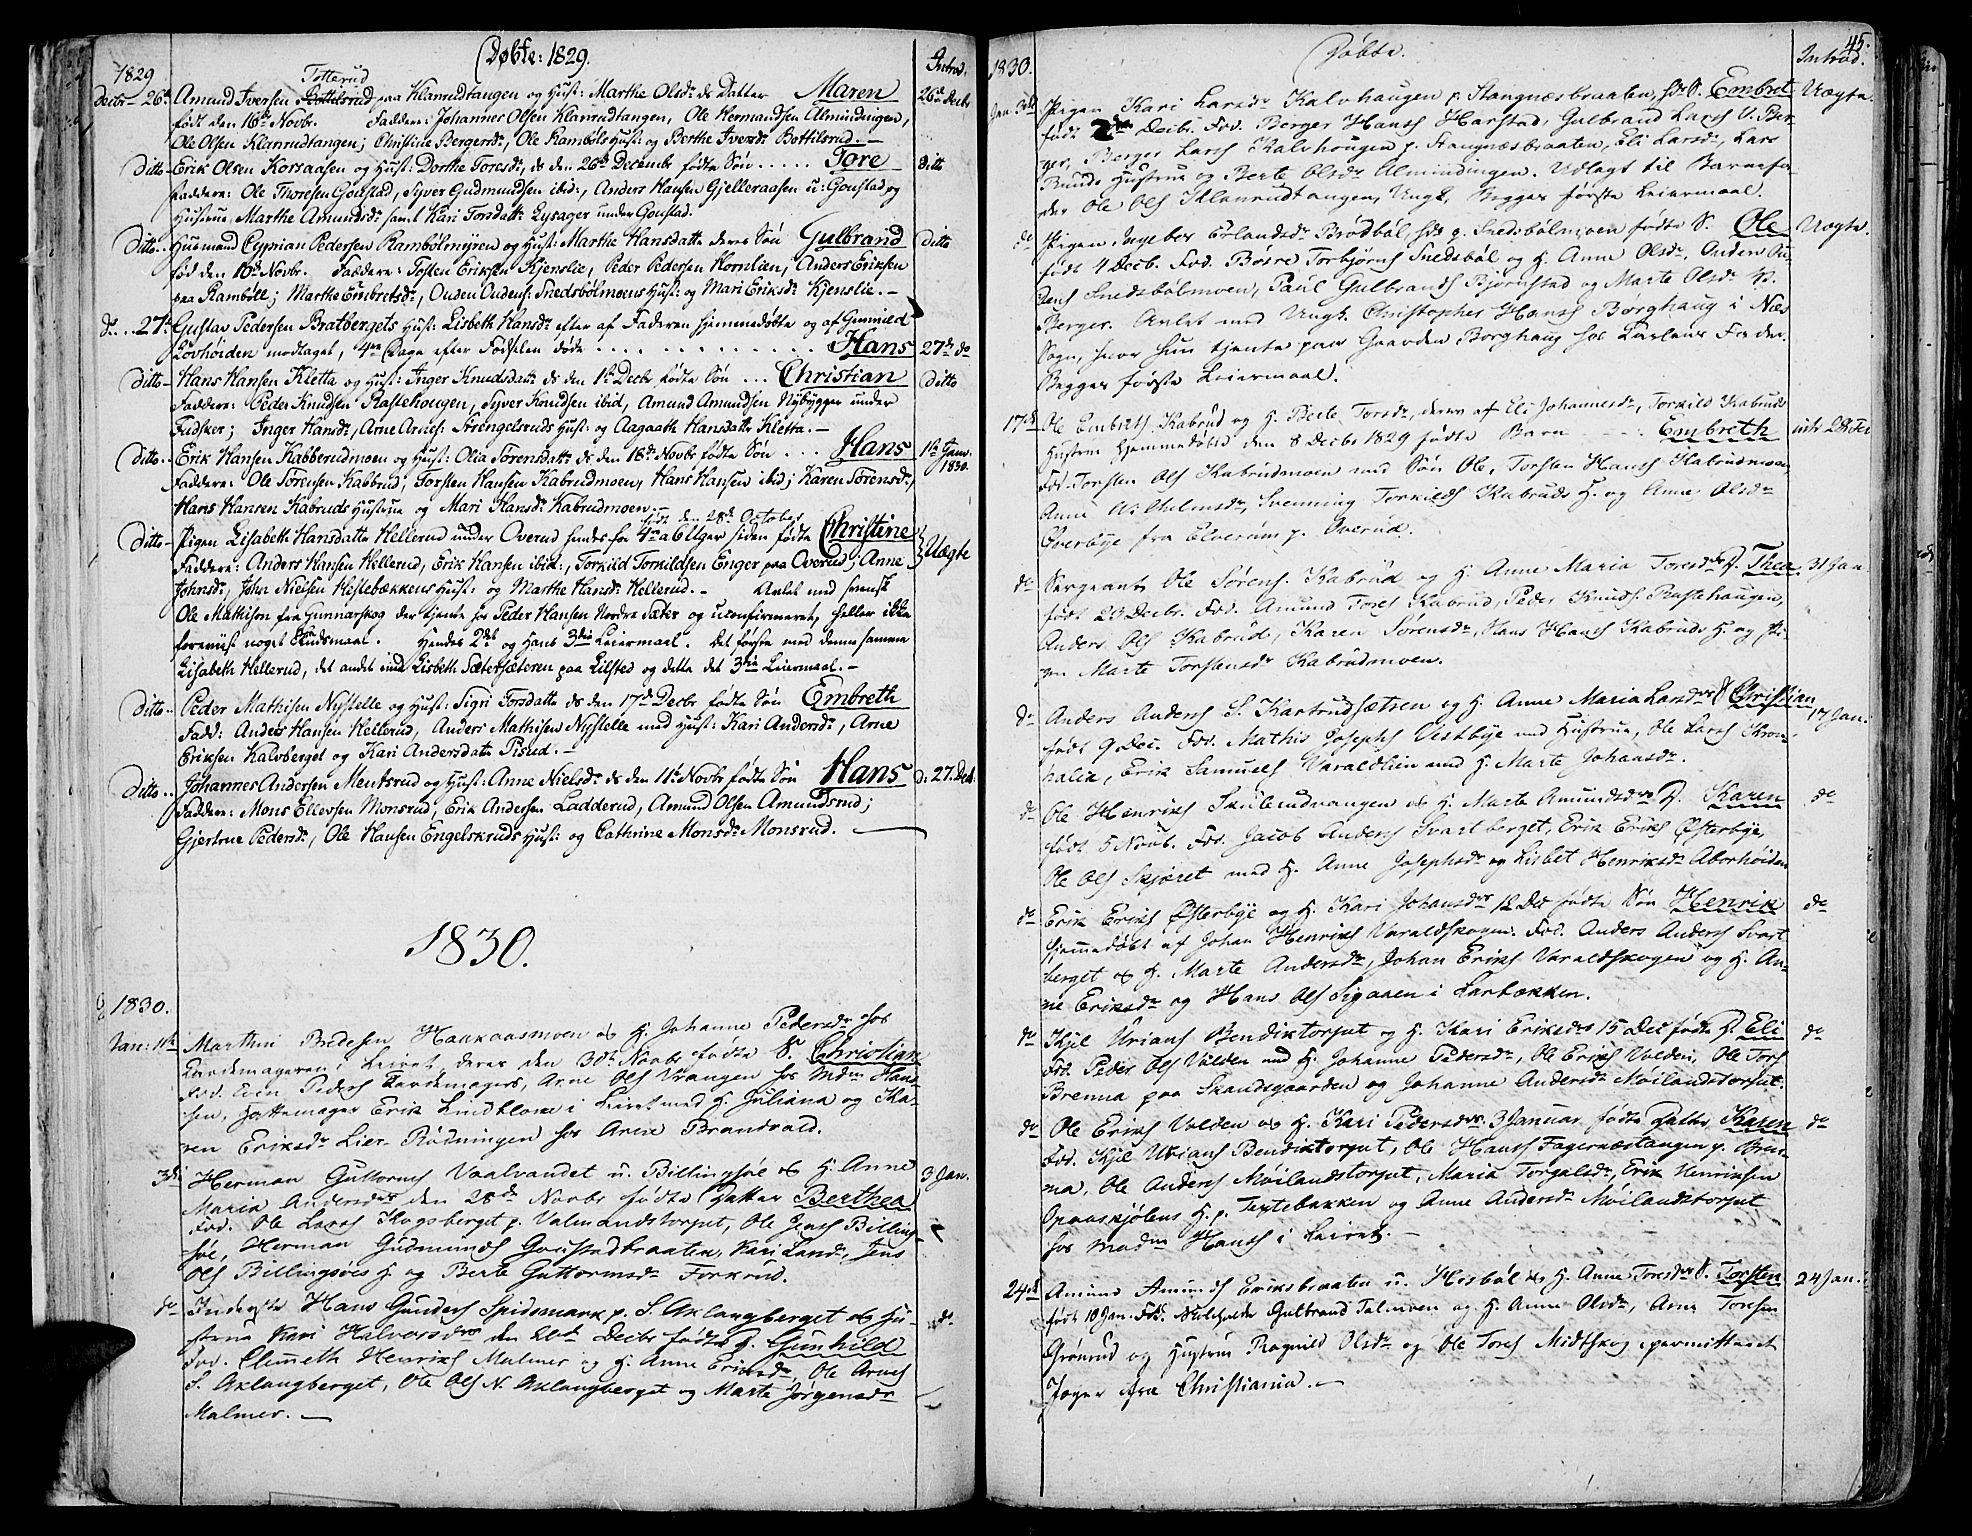 1829 Døbte: 1829. Introd.
Totterud
Decbr 26de Amund Iversen Bottilsrud paa Klanrudtangen og Hust: Marthe Olsdr ds Datter Maren 26de Decbr
født den 16de Novbr. Faddere: Johannes Olsen Klanrudtangen, Ole Hermandsen Almindingen,
Ole Olsen Klanrudtangen; Christine Bergersdr, Ole Rambøls Hust: og Berthe Iversdr Bottilsrud.
Ditto Erik Olsen Korsaasen og Hust: Dorthe Toresdr, ds den 26de Decembr fødte Søn ..... Tore Ditto
Faddere: Ole Thoresen Goustad, Syver Gudmundsen ibid:, Anders Hansen Gjelleraasen u: Goustad og
Hustrue Marthe Amundsdr samt Kari Torsdatt: Lysager under Goustad.
Ditto.. Husmand Cyprian Pedersen Rambølmyren og Hust: Marthe Hansdatter deres Søn Gulbrand Ditto
fød den 16de Novbr. Faddere: Tosten Eriksen Kjenslie, Peder Pedersen Hornlien, Anders Eriksen
paa Rambøll; Marthe Embretsdr, Ouden Oudens: Snedsbølmoens Hust: og Mari Eriksdr Kjenslie.
do.. 27de Gustav Pedersen Bratbergets Hust: Lisbeth Hansdr efter af Faderen hjemmedøbte og af Gunnild
Lovhøiden modtaget, 4re Dage efter Fødselen døde .......... Hans 27de do
Ditto Hans Hansen Kletta og Hust: Inger Knudsdatter ds den 1ste Decbr fødte Søn ... Christian Ditto
Faddere: Peder Knudsen Rastehougen, Syver Knudsen ibid, Amund Amundsen Nybygger under
Fudsker; Inger Hansdr, Arne Arnes: Strengelsruds Hust: og Aagaath Hansdatter Kletta.
Ditto.. Erik Hansen Kabberudmoen og Hust: Olia Sørensdatter ds den 18de Novbr fødte Søn ... Hans 1ste Janv. 1830.
Faddere: Ole Sørensen Kabbrud, Torsten Hansen Kabrudmoen, Hans Hansen ibid; Karen Sørensdr,
Hans Hansen Kabruds Hustrue og Mari Hansdr Kabrudmoen.
født den 28de October
Ditto Pigen Lisabeth Hansdatter Hellerud under Overud hendes for 4re a 6 Uger siden fødte Christine Uægte
Faddere: Anders Hansen Hellerud, Erik Hansen ibid:, Torkild Torkildsen Enger paa Overud; Anne
Johnsdr, John Nielsen Hestebækkens Hust: og Marthe Hansdr Hellerud. Avlet med svensk
Ole Mathison fra Gunnarskog der tjente hos Peder Hansen Nordre Sæter og uconfirmeret, heller ikke
foreviist noget Skudsmaal. Hendes 2det og hans 3die Leiermaal. Det første med denne samme
Lisabeth Hellerud, det andet med Lisbeth Sætersæteren paa Lilsted og dette det 3die Leiermaal.
Ditto.. Peder Mathisen Nystelle og Hust: Sigri Torsdatter ds den 17de Decbr fødte Søn Embreth
Fadd: Anders Hansen Hellerud, Anders Mathisen Nystelle med Hust: Kari Andersdr, Arne
Eriksen Kalvberget og Kari Andersdatter Pisrud.
Ditto.. Johannes Andersen Mentsrud og Hust: Anne Nielsdr ds den 11te Novbr fødte Søn Hans d: 27. Dec.
Faddere: Mons Ellevsen Monsrud, Erik Andersen Ladderud, Amund Olsen Amundsrud;
Gjertrue Pedersdr, Ole Hansen Engelskruds Hust: og Cathrine Monsdr Monsrud.
1830.
1830.
Jan: 1ste Marthin Bredesen Haakaasmoen og H. Johanne Pedersdr hos
Gardemageren i Leiret, deres den 30te Novbr fødte S. Christian
Fad. Even Peders Gardemager, Arne Ols Vrangen hos Mdm Han-
sen, Hattemager Erik Lindblom i Leiret med H. Juliana og Ka-
ren Eriksdr Lier Rødningen hos Arne Brandvald.
3die Herman Guttorms Vaalvandet u. Billingsøe og H. Anne 3 Jan.
Maria Andersdr den 28de Novbr fødte Datter Berthea
Fad. Ole Larss Kogsberget p. Valmandstorpet, Ole Jenss Billing-
søe, Herman Gudmunds Goustadbraaten, Kari Larsdr, Jens
Ols Billingsøes H. og Berte Guttormsdr Forkrud.
do Inderste Hans Gunders Spidsmark p. S. Aklangberget og Hu- do
strue Kari Halvorsdr den 22de Decbr fødte D. Gunhild
Fad. Clemeth Henriks Malmer og H. Anne Eriksdr, Ole Arnes
S. Aklangberget, Ole Ols N. Aklangberget og Marte Jørgensdr
Malmer.
1830. Døbte. 45. Introd.
Jan 3die Pigen Kari Larsdr Kalvhaugen p. Stangnæsbraaten, hds S. Embret Uægte
født 2den Decbr. Fad. Berger Hanss Harstad, Gulbrand Larss V. Ber-
ger, Berger Larss Kalvhougen p. Stangnæsbraaten, Eli Larsdr, Lars
Bruuds Hustrue og Berte Olsdr Almindingen. Udlagt til Barnefa-
der Ole Ols Klanrudtangen, Ungk. Begges første Leiermaal.
do Pigen Ingebor Erlandsdr Brødbøl hds p. Snedsbølmoen fødte S. Ole Uægte.
født 4 Decb. Fad. Børre Torbjørns Snedsbøl og H. Anne Olsdr, Ouden Ou-
dens Snedsbølmoen, Paul Gulbrands Bjørnstad og Marte Olsdr V.
Berger. Avlet med Ungk. Christopher Hanss Børghaug i Næs
Sogn, hvor hun tjente paa Gaarden Borghaug hos Karlens Fader.
Begges første Leiermaal.
17de Ole Embreths Kabrud og H. Berte Torsdr, deres af Eli Johannesdr, Torkild Kabruds
Hustru hjemmedøbte den 8 Decbr 1829 fødte Barn Embreth intr 2den Febr
Fad. Torsten Ols Kabrudmoen med Søn Ole, Torsten Hanss Kabrudmoen,
Anne Wilhelmsdr, Svenning Torkilds Kabruds H. og Anne Olsdr
Øverbye fra Elverum p. Overud.
do Sergeant Ole Sørens Kabrud og H. Anne Maria Toresdrs D. Thea 31 Jan.
født 23 Decbr. Fad. Amund Tores Kabrud, Peder Knuds Rastehaugen,
Anders Ols Kabrud, Karen Sørensdr, Hans Hanss Kabruds H. og Pi-
gen Marte Torstensdr Kabrudmoen.
do Anders Anders S. Kartrudsætren og H. Anne Maria Larsdrs S Christian 17 Jan.
født 9 Dec. Fad. Mathis Josephs Vestbye med Hustrue, Ole Larss Kron-
halia, Erik Samuels Varaldlien med H. Marte Johansdr.
do Ole Henriks Skulerudvangen og H. Marte Amundsdrs D. Karen do
født 5 Novb. Fad. Jacob Anders Svartberget, Erik Eriks Østerbye,
Ole Ols Skjæret med H. Anne Josephsdr og Lisbet Henriksdr Aborhøiden
do Erik Eriks Østerbye og H. Kari Johansdrs 12 Dec fødte Søn Henrik do
hjemmedøbt af Johan Henriks Varaldskogen. Fad. Anders Anders Svart
berget og H. Marte Andersdr, Johan Eriks Varaldskogen og H. An-
ne Eriksdr og Hans Ols Sigaaen i Larbækken.
do Kjel Urians Bendiktorpet og H. Kari Eriksdrs 15 Dec fødte D. Eli do
Fad. Peder Ols Volden med H. Johanne Pedersdr, Ole Eriks Volden, Ole Tors
Brenna paa Skandsgaarden og Johanne Andersdr Møilandstorpet.
do Ole Eriks Volden og H. Kari Pedersdrs 3 Januar fødte Datter Karen do
Fad. Kjel Urians Bendiktorpet, Ole Hanss Fagernæstangen p. Bren-
na, Ole Anders Møilandstorpet, Maria Torgalsdr, Erik Henriksen
Opaaskjølens H. p. Teptebakken og Anne Andersdr Møilandstorpet
hos Madm Hanss i Leiret.
24de Amund Amunds Eriksbraaten u. Hisbøl og H. Anne Toresdrs S. Torsten 24 Jan.
født 10 Jan. Fad. Gulbrand Talmoen og H. Anne Olsdr, Arne Toresen
Grønrud og Hustrue Ragnild Olsdr og Ole Tores Midtskog permitteret
Jæger fra Christiania.